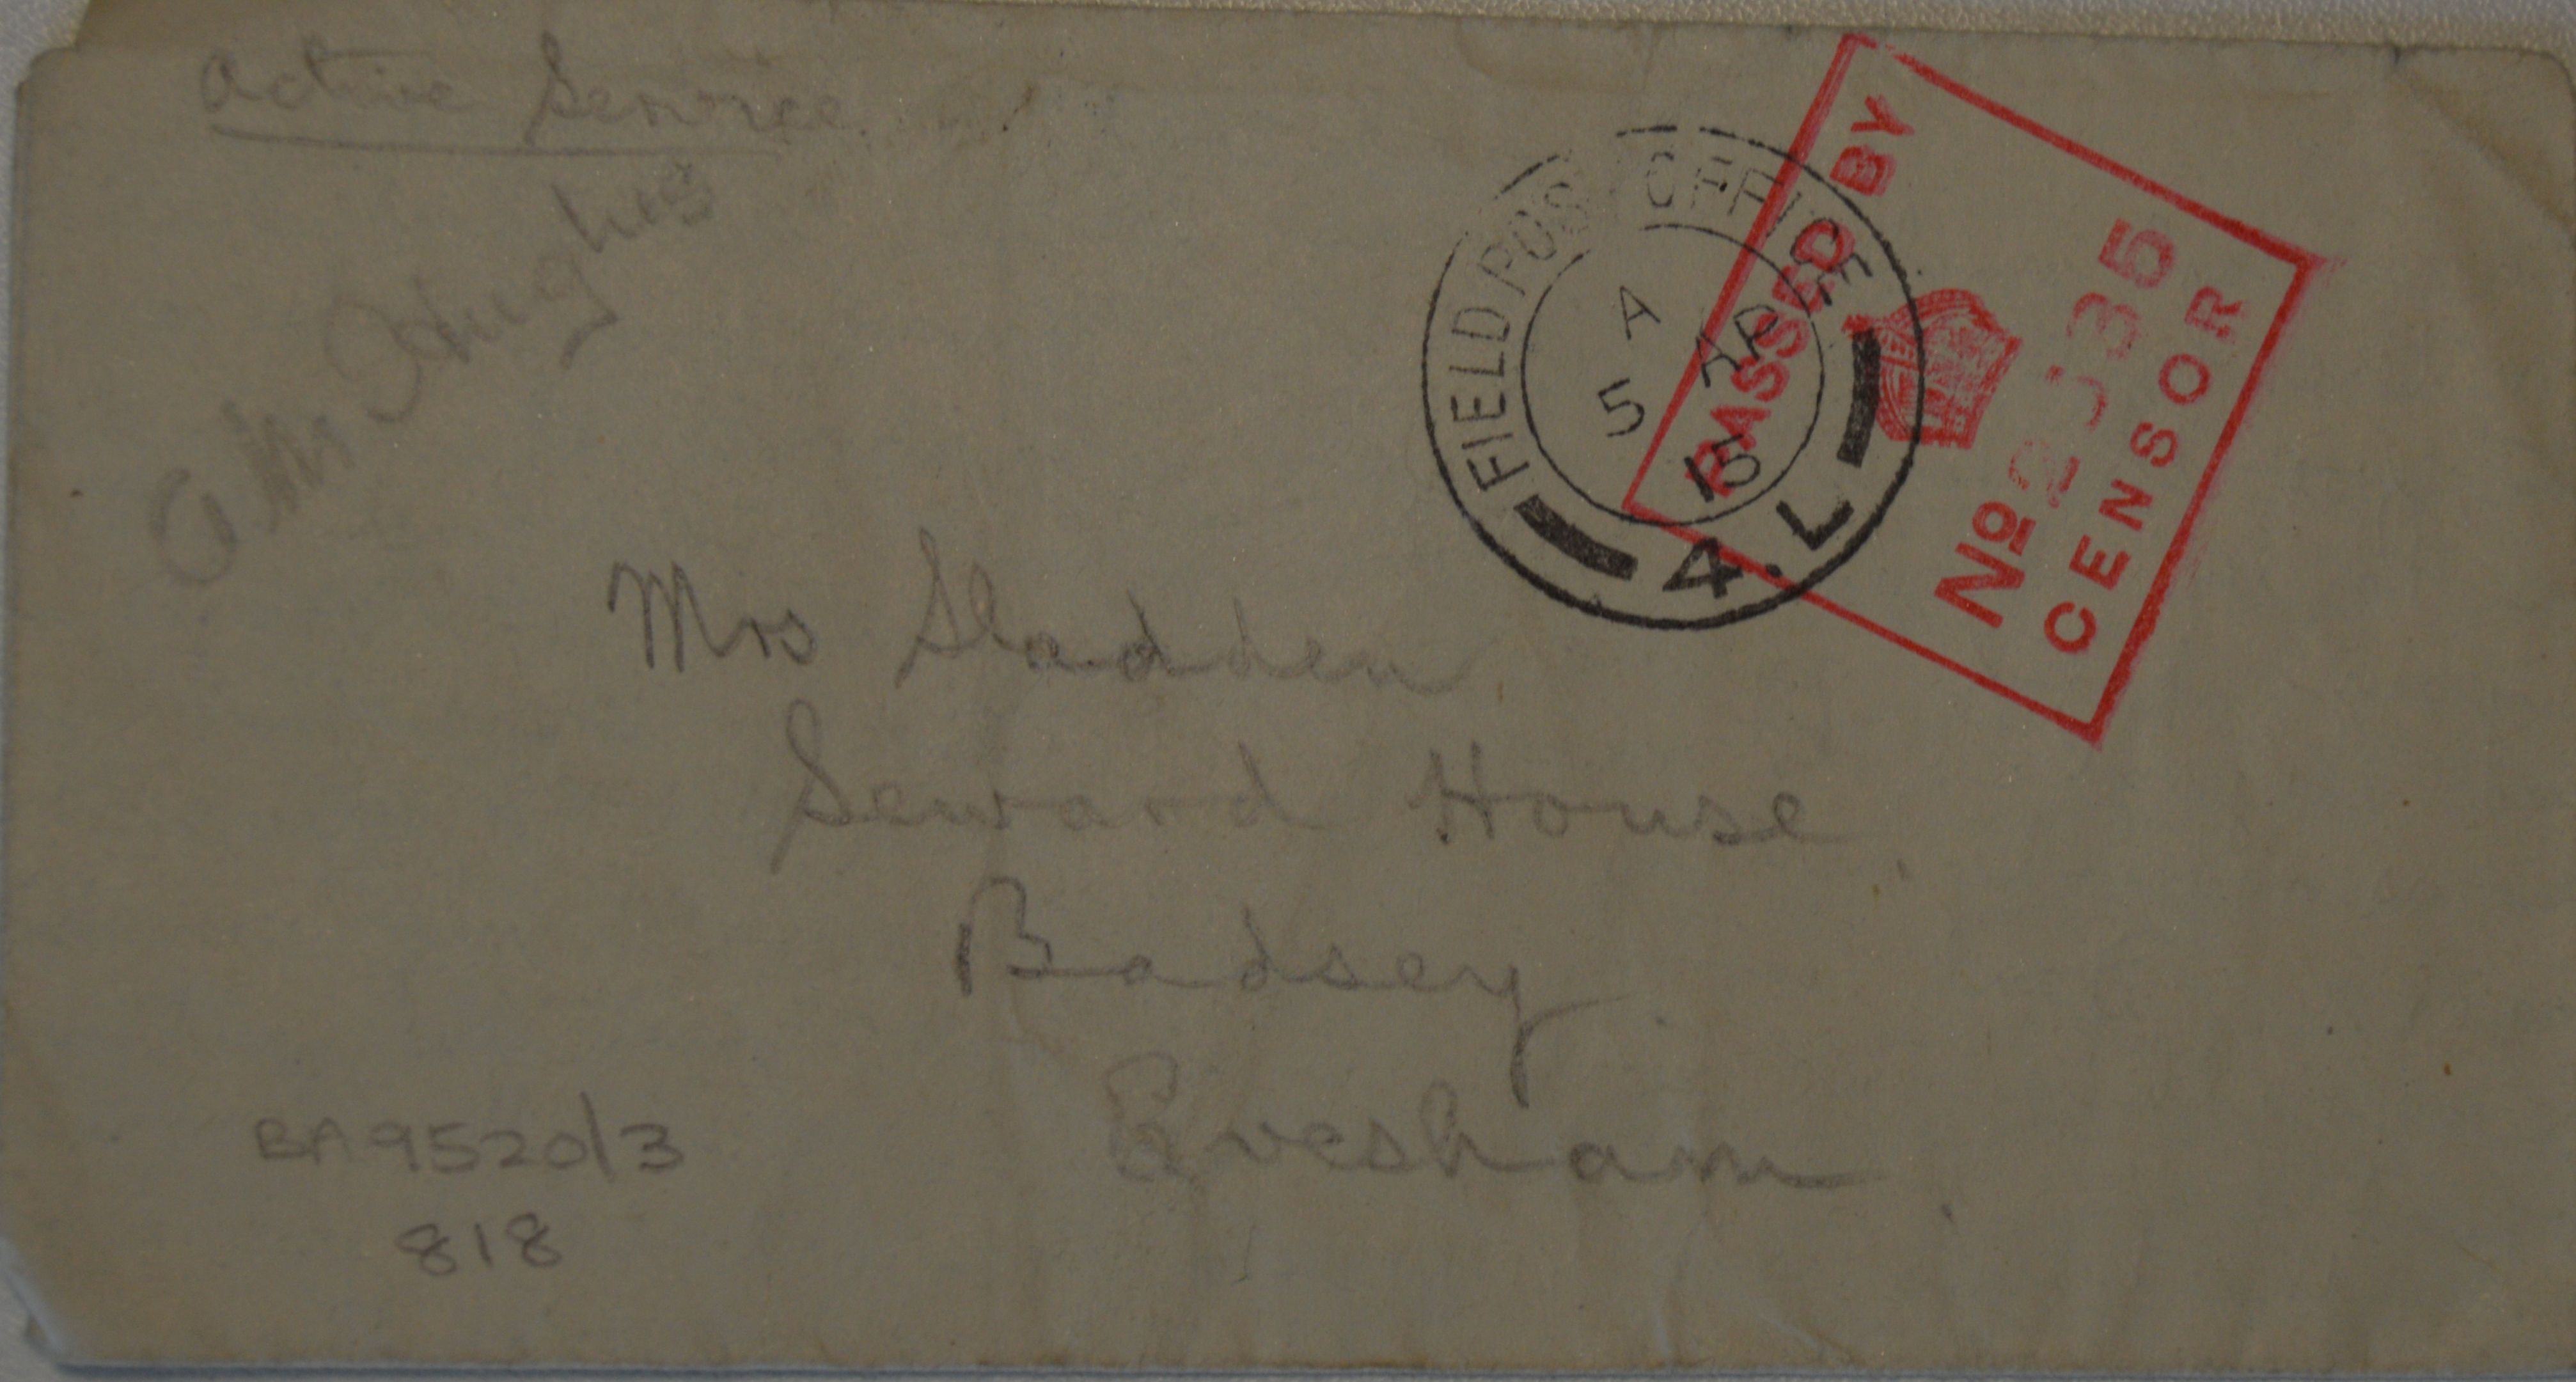 Active Service.
Hughes
FIELD POST OFFICE
A
5 AP
15
4.L
PASSED BY
No 2335
CENSOR
Mrs Sladden
Seward House,
Badsey
Evesham.
BA 9520/3
818